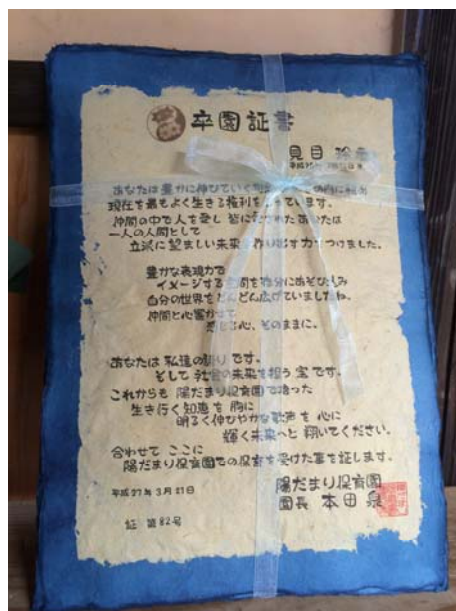 卒園証書
見目
平成
あなたは豊かに伸びていく
現在を最もよく生きる権利を
っています。
仲間の中で人を愛し 皆に
された あなたは
一人の人間として
立派に望ましい未来を作り出す力をつけました。
豊かな表現力で
イメージする
間を
分にあそび
しみ
自分の世界をどんどん広げていましたね。
仲間と心響かせて
感じる心、そのままに。
あなたは 私達の誇り です。
そして 社会の未来を担う 宝 です。
これからも 陽だまり保育園で培った
生き行く知恵 を 胸に
明るく伸びやかな歌声 を 心に
輝く未来へと 翔いてください。
合わせて ここに
陽だまり保育園での保育を受けた事を証します。
平成27年3月21日
陽だまり保育園
園長 本田 泉
証 第82号